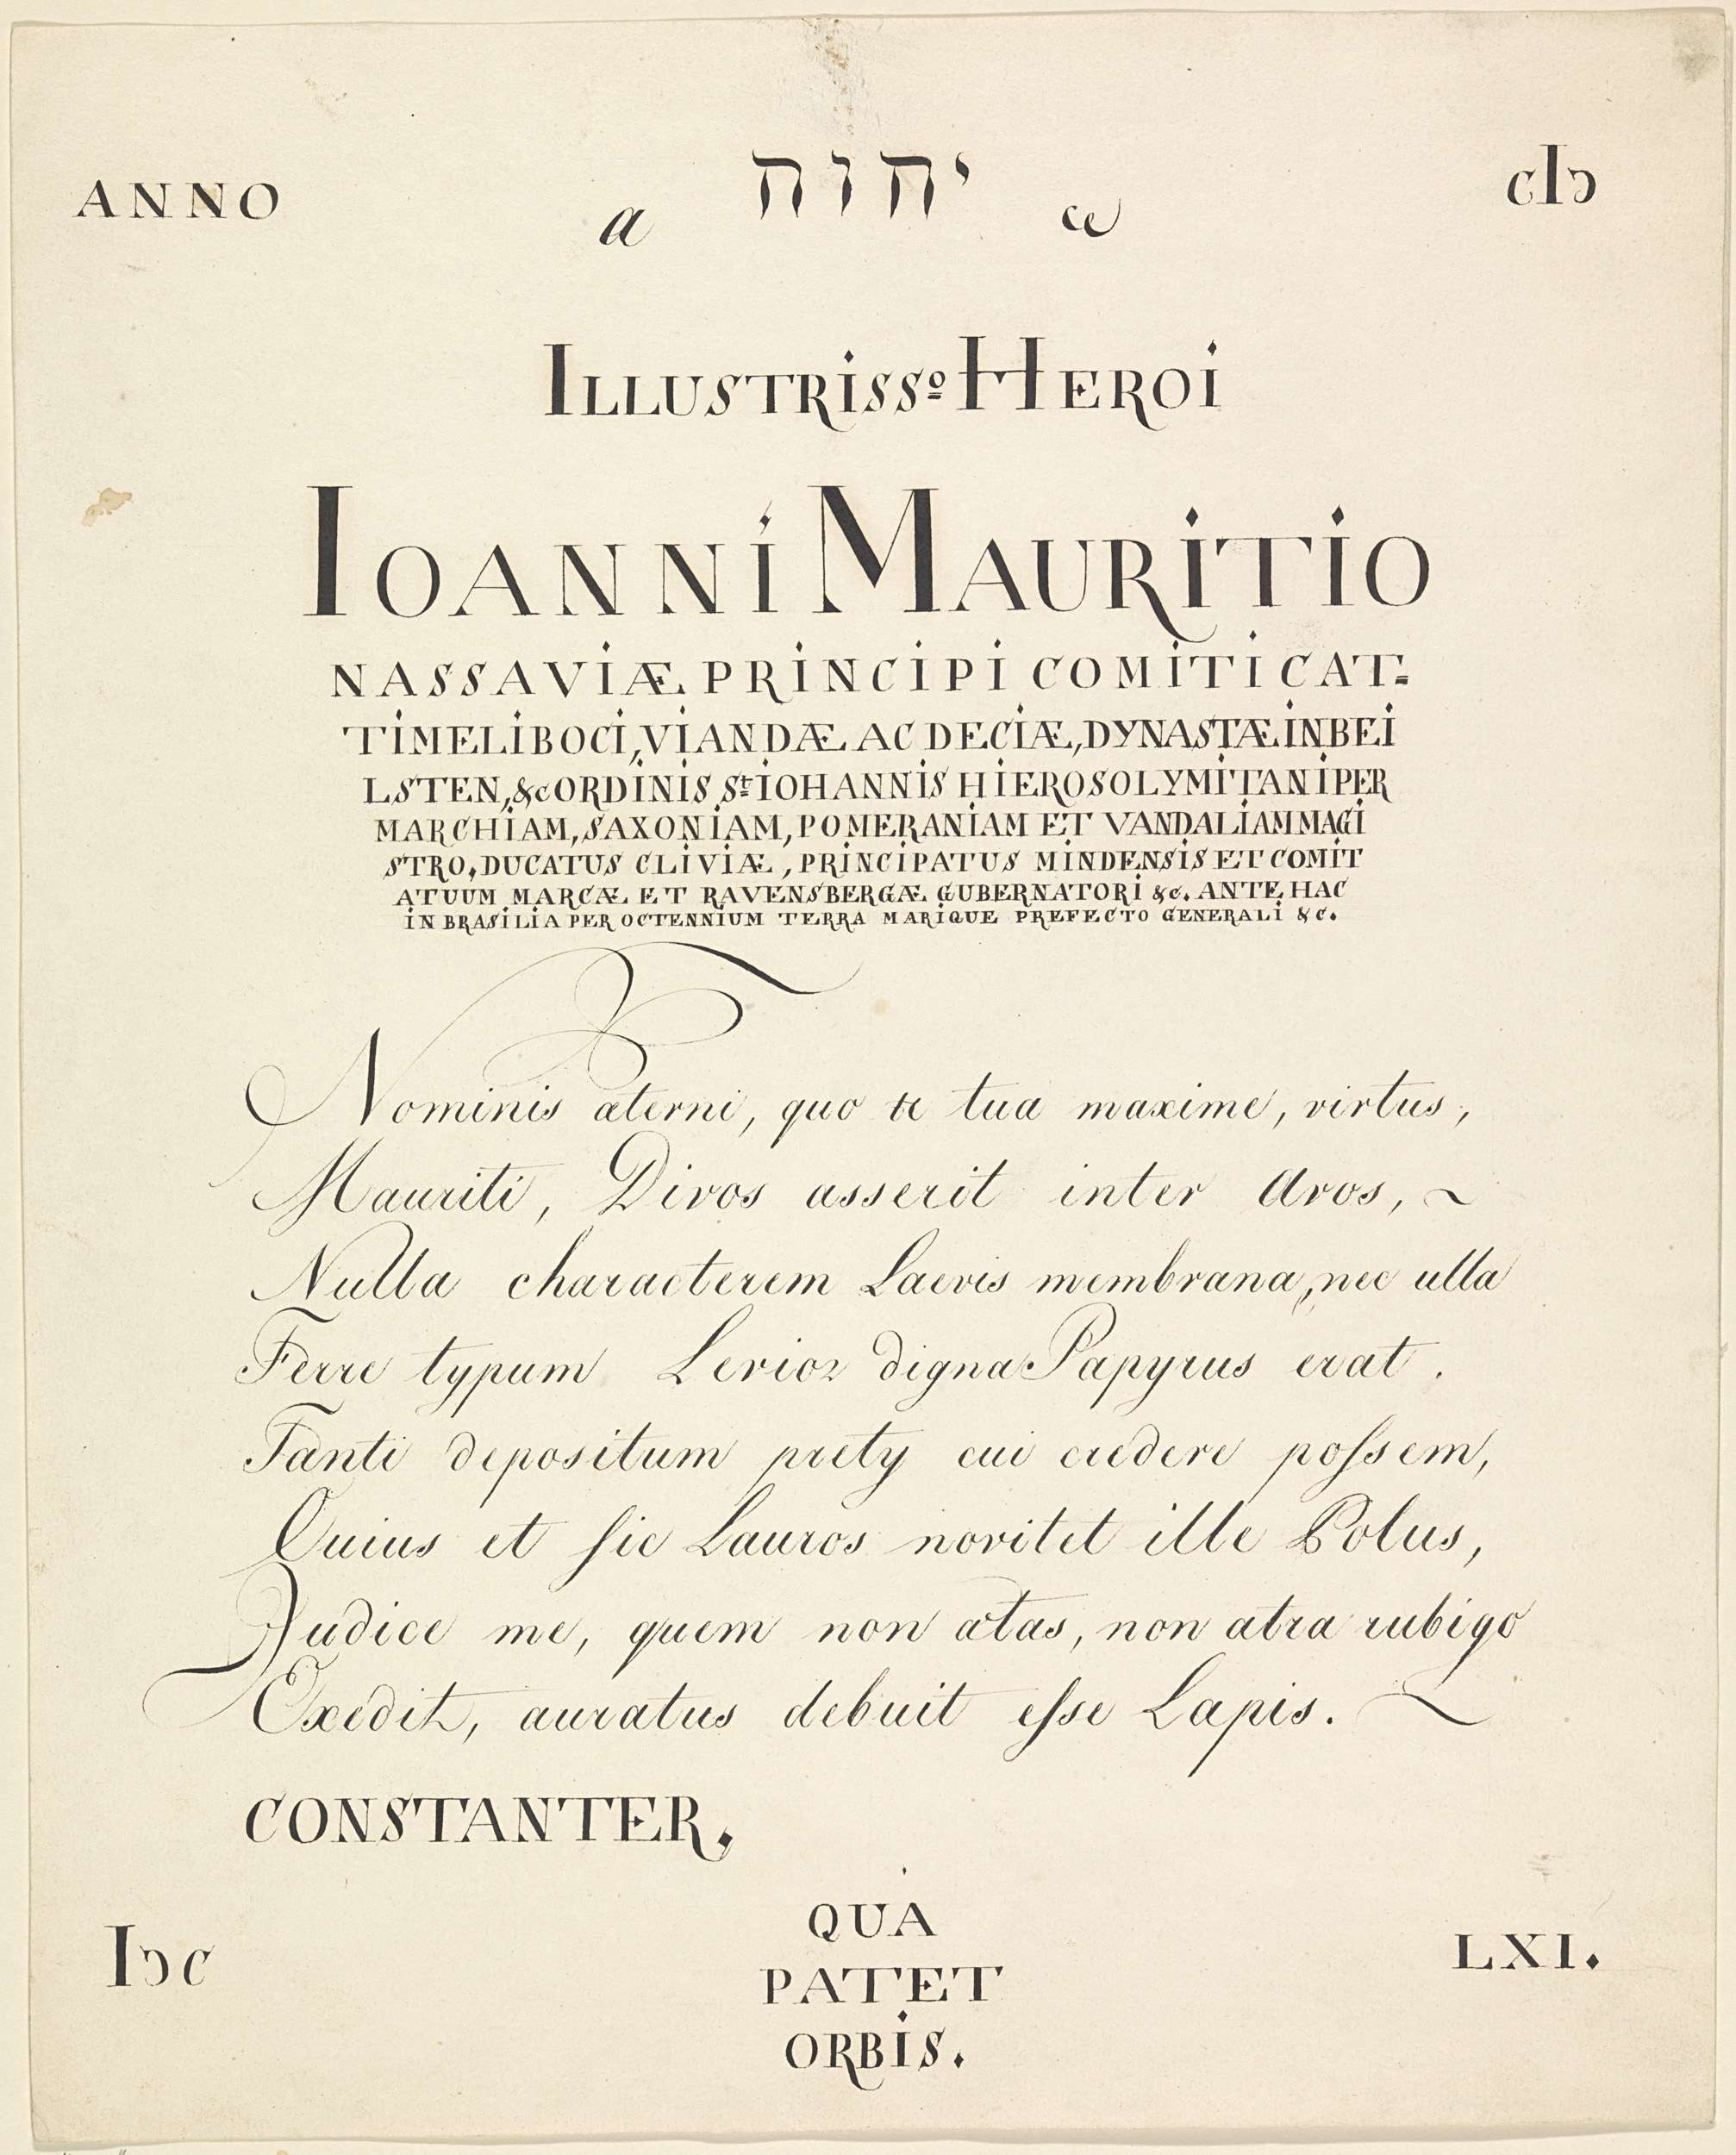 ANNO a יהוה ω cIɔ
ILLUSTRISSº HEROI
IOANNI MAURITIO
NASSAVIÆ PRINCIPI COMITI CAT=
TIMELIBOCI, VIANDÆ AC DECIÆ, DYNASTÆ IN BEI
LSTEN, &c ORDINIS St IOHANNIS HIEROSOLYMITANI PER
MARCHIAM, SAXONIAM, POMERANIAM ET VANDALIAM MAGI
STRO, DUCATUS CLIVIÆ, PRINCIPATUS MINDENSIS ET COMIT
ATUUM MARCÆ ET RAVENSBERGÆ GUBERNATORI &c. ANTE HAC
IN BRASILIA PER OCTENNIUM TERRA MARIQUE PREFECTO GENERALI &C.
Nominis æterni, quo te tua maxime, virtus,
Mauriti, Divos asserit inter Avos, ~
Nulla characterem Laevis membrana, nec ulla
Ferre typum Levior digna Papyrus erat.
Tanti depositum prety cui credere poſsem,
Cuius et ſic Lauros novitet ille Polus,
Judice me, quem non ætas, non atra rubigo
Exedit, auratus debuit eſse Lapis.
CONSTANTER.
QUA
PATET
ORBIS.
Iɔc LXI.